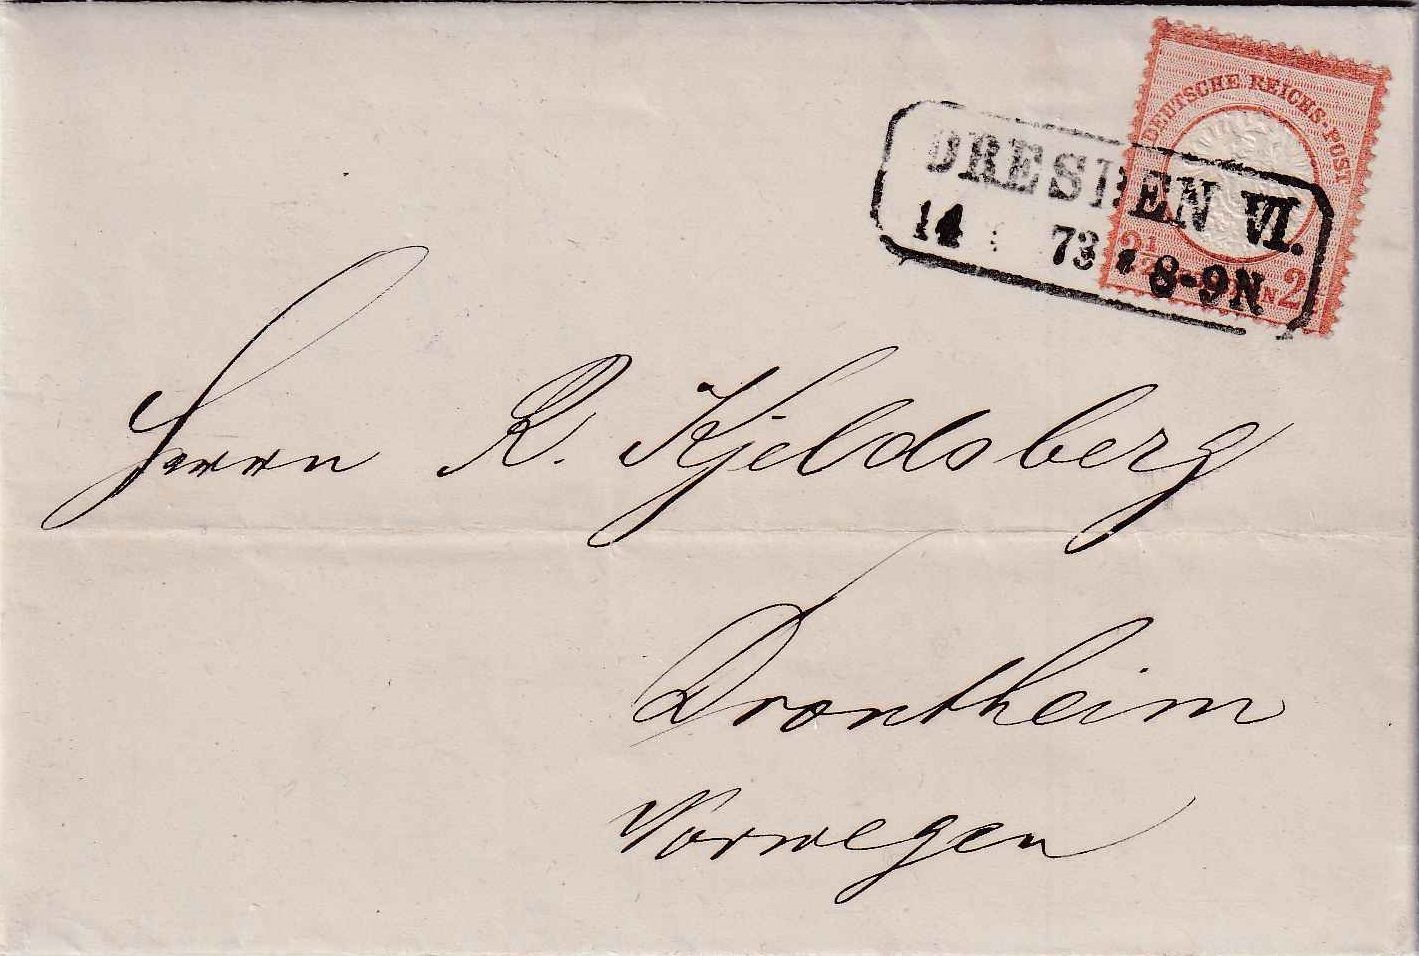 DEUTSCHE REICHS-POST
DRESDEN VI.
14 73 * 8-9N.
2½ 2
Herrn R. Kjeldsberg
Drontheim
Norwegen